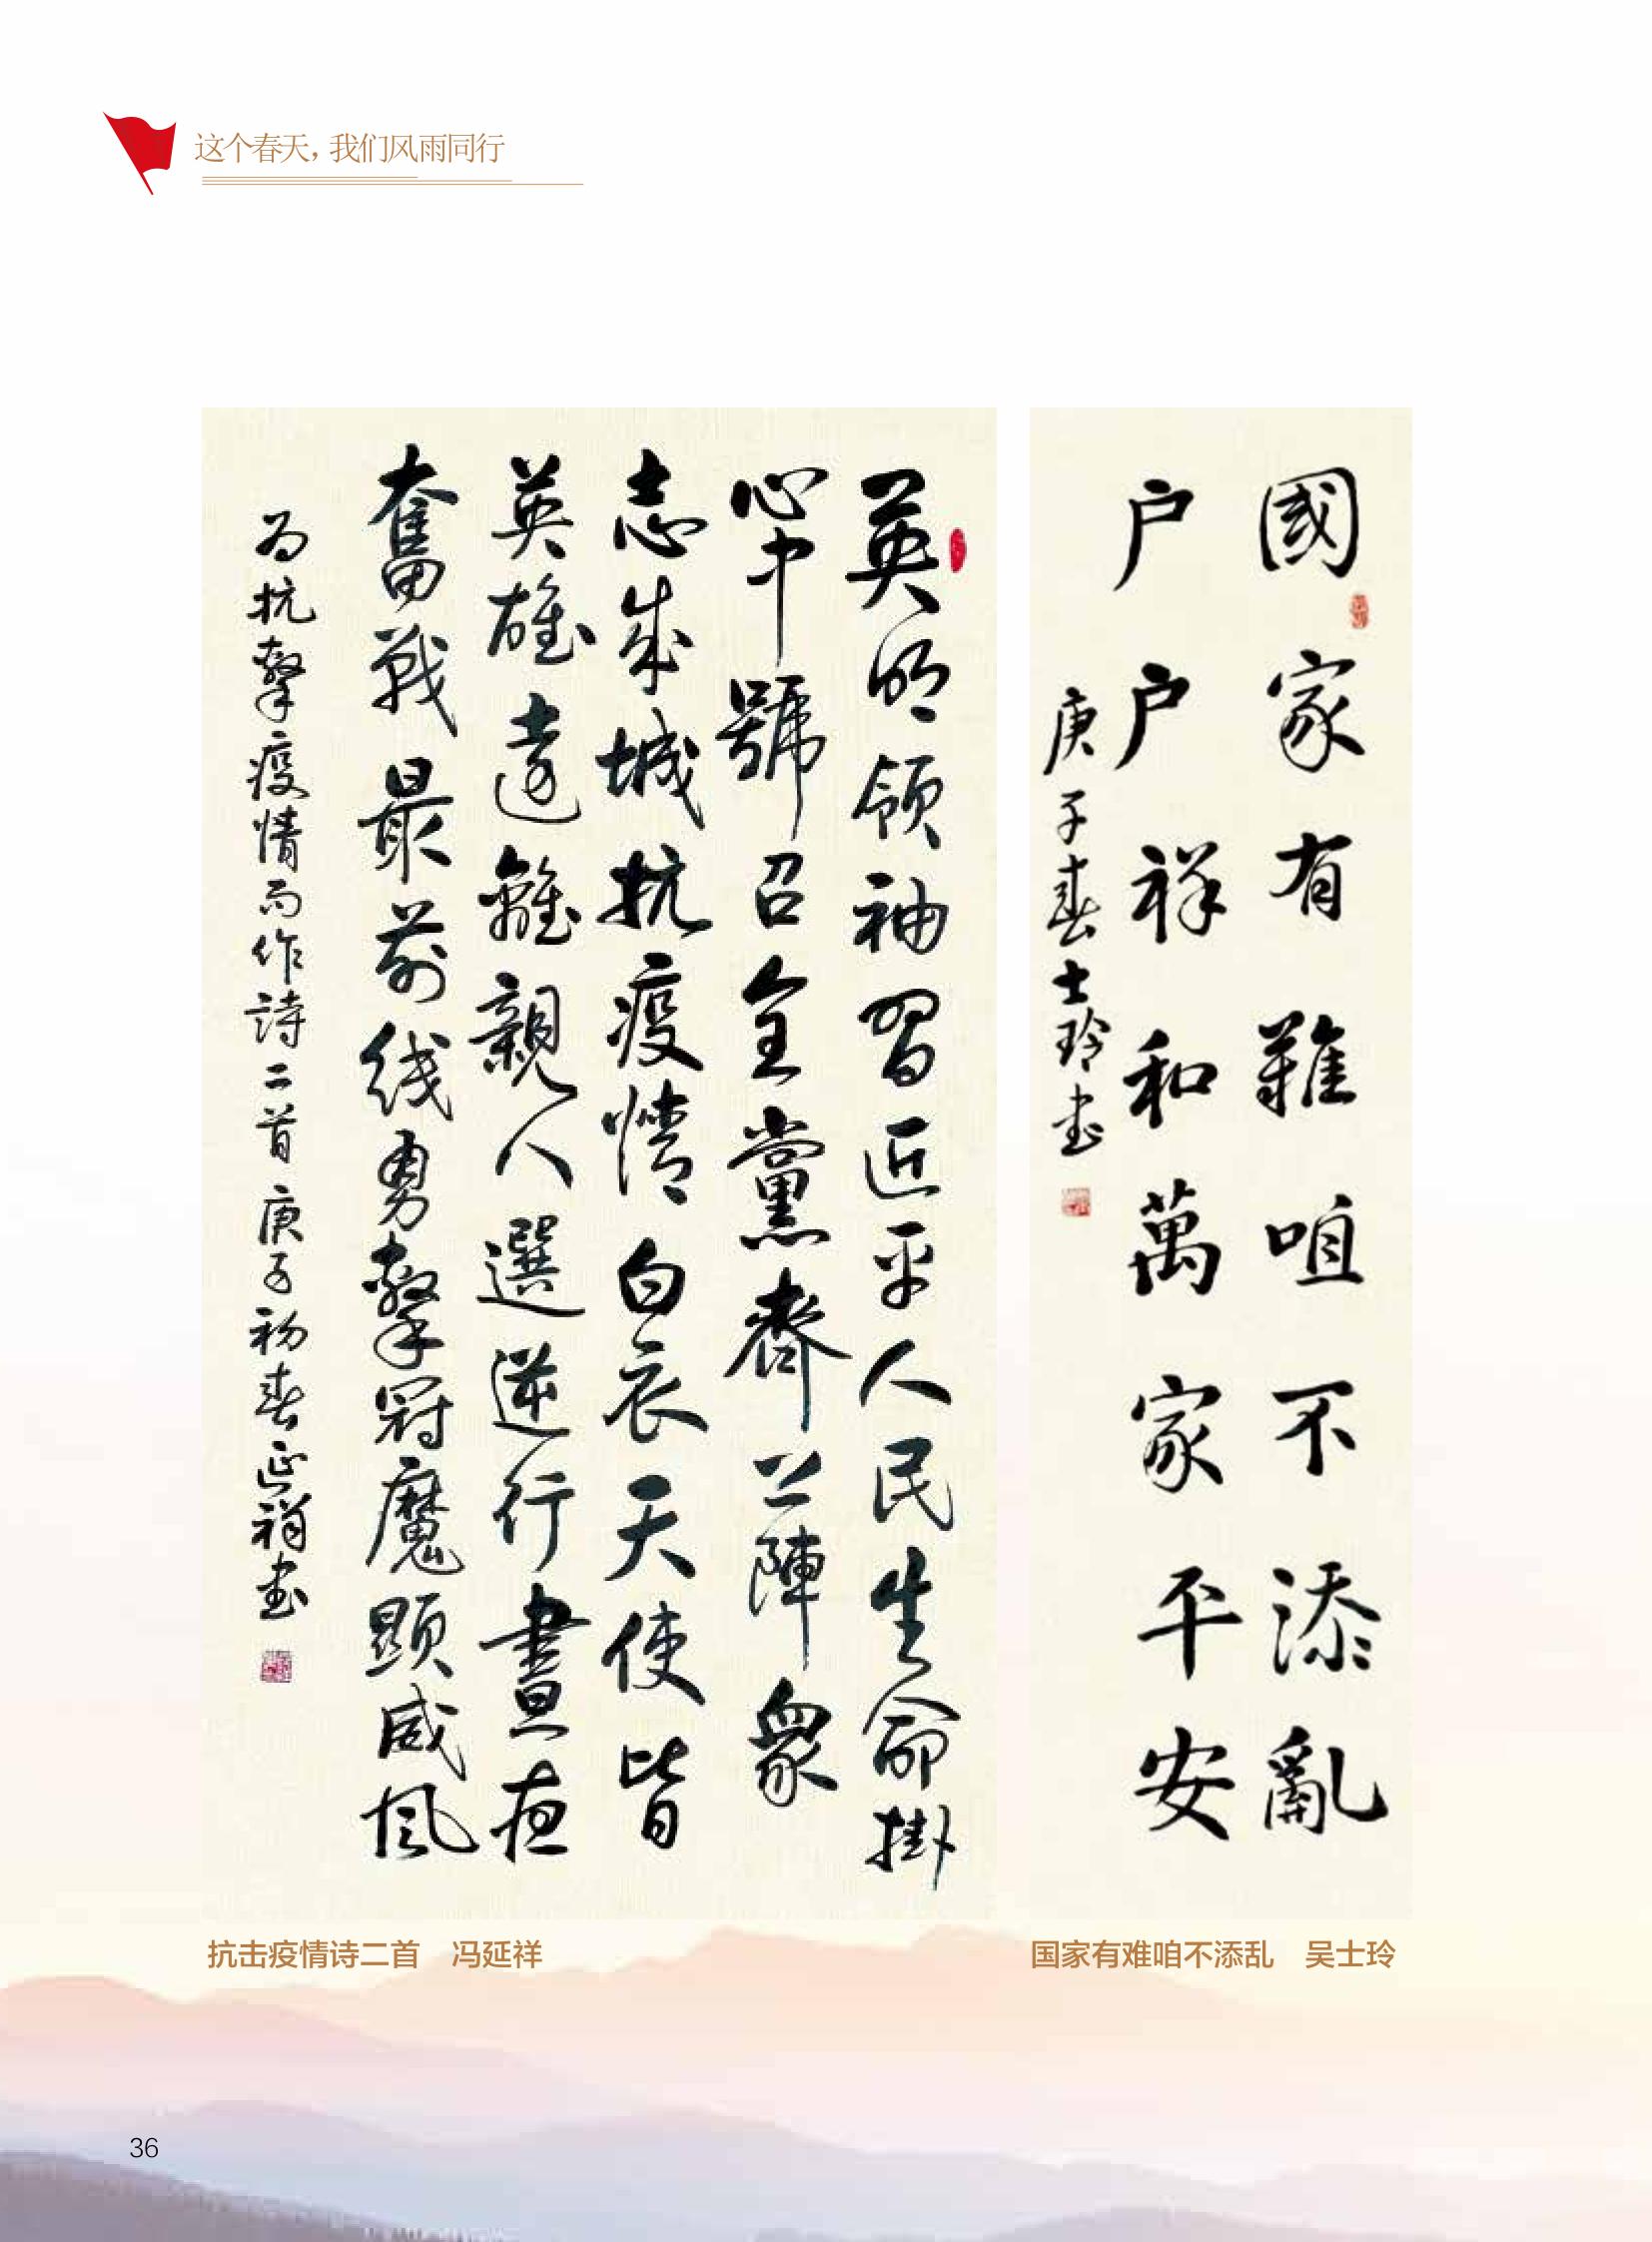 这个春天，我们风雨同行
國家有難咱不添亂
户户祥和萬家平安
庚子春士玲书
英明領袖習近平人民生命掛
心中號召全黨齊上陣衆
志成城抗疫情白衣天使皆
英雄遠離親人選逆行晝夜
奮戰最前线勇擊冠魔顯威风
为抗擊疫情而作詩二首庚子初春延祥书
抗击疫情诗二首 冯延祥
国家有难咱不添乱 吴士玲
36